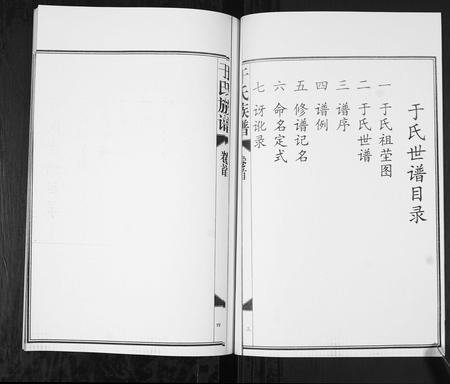 于氏世谱目录
一 于氏祖茔图
二 于氏世谱
三 谱序
四 谱例
五 修谱记名
六 命名定式
七 讶讹录
于氏族谱
卷首
三
于氏族谱
卷首
四